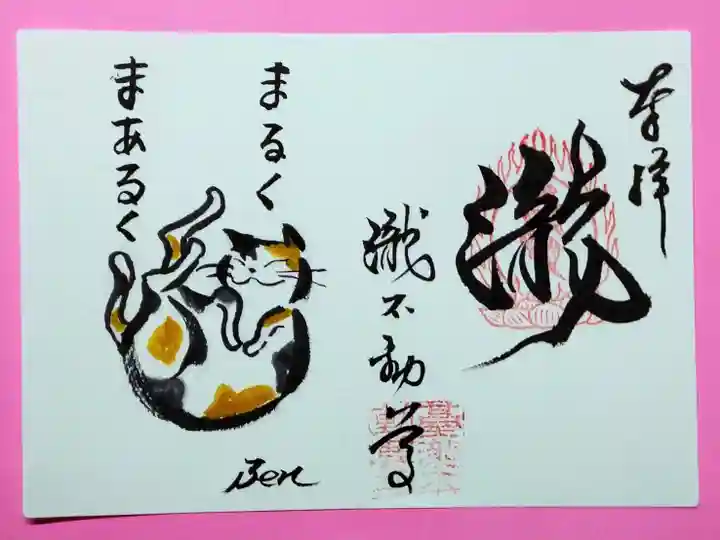 奉拝
瀧
瀧不動尊
まるく
まあるく
Zen